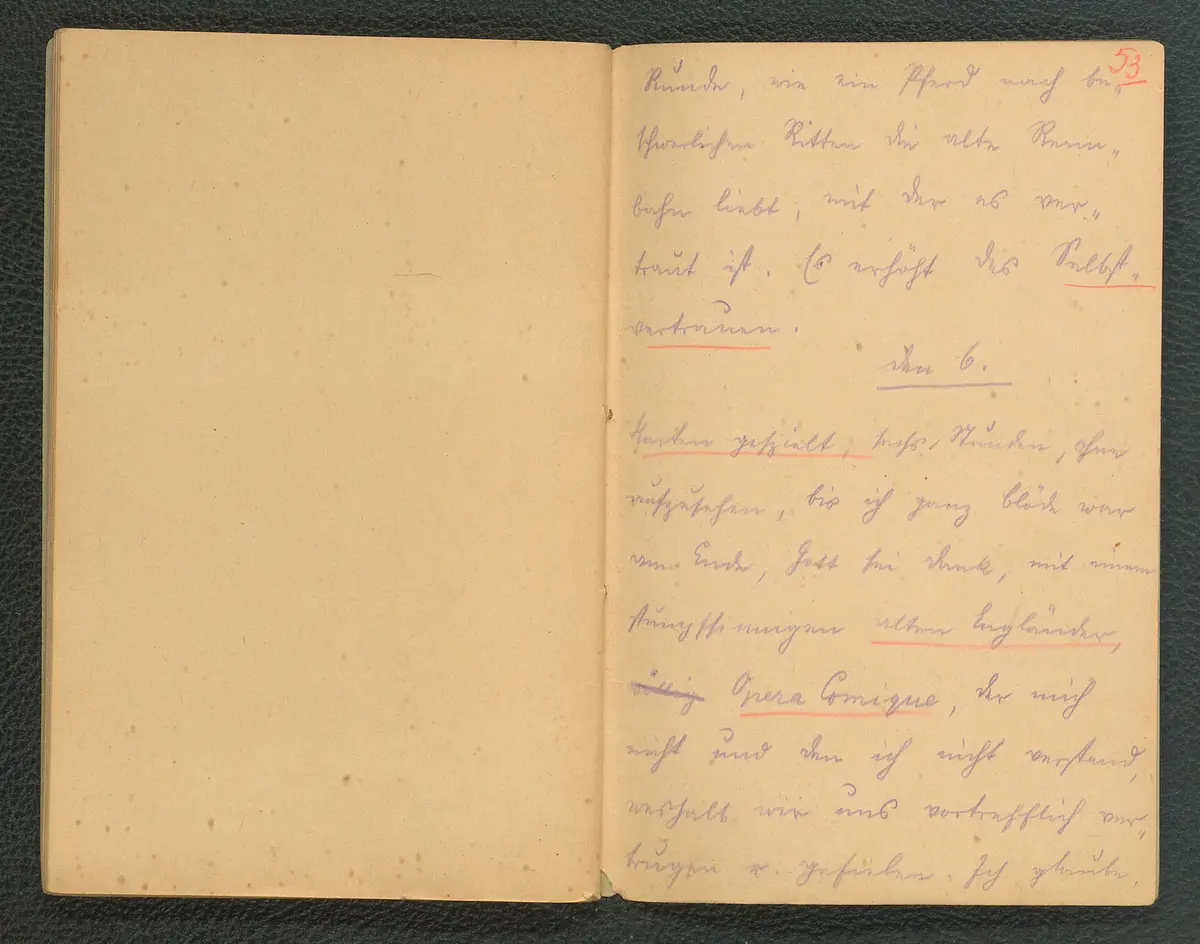 53
Runde, wie ein Pferd nach be„
schwerlichen Ritten die alte Renn„
bahn liebt, mit der es ver„
traut ist. Es erhöht das Selbst„
vertrauen.
den 6.
Karten gespielt, sechs Stunden, ohne
aufzusehen, bis ich ganz blöde war
am Ende, Gott sei dank, mit einem
stumpfsinnigen alten Engländer,
völlig Opera Comique, der mich
nicht und den ich nicht verstand,
weshalb wir uns vortrefflich ver„
trugen u. gefielen. Ich glaube,